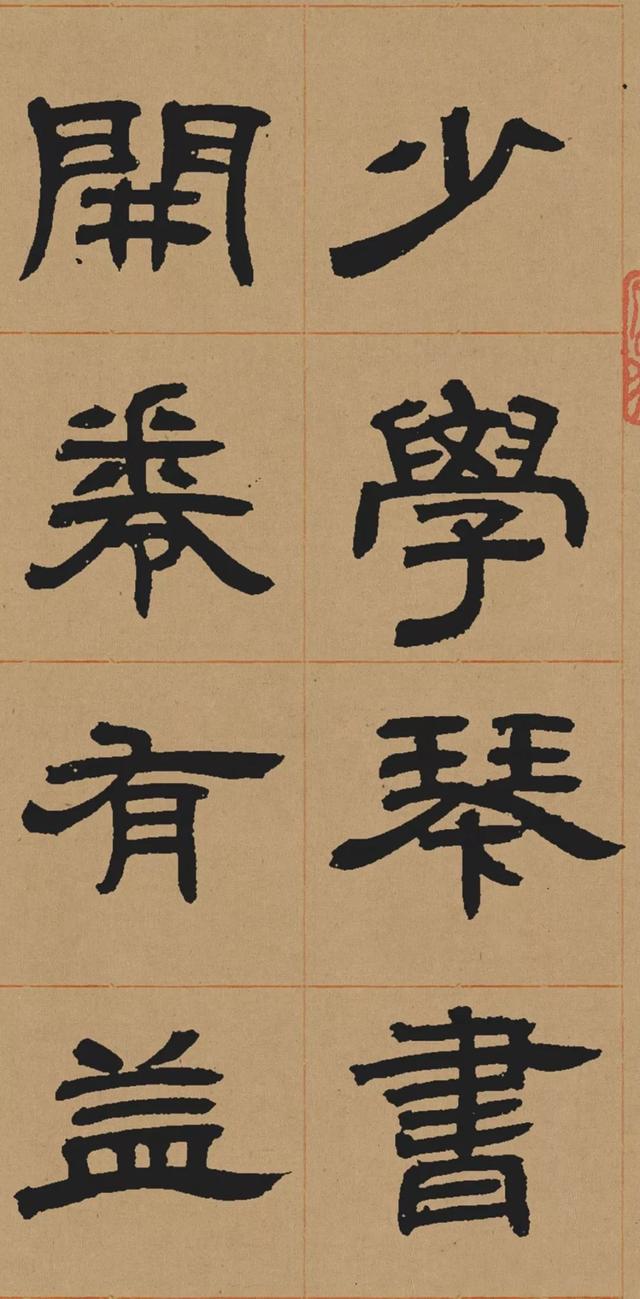 少學琴書
開卷有益